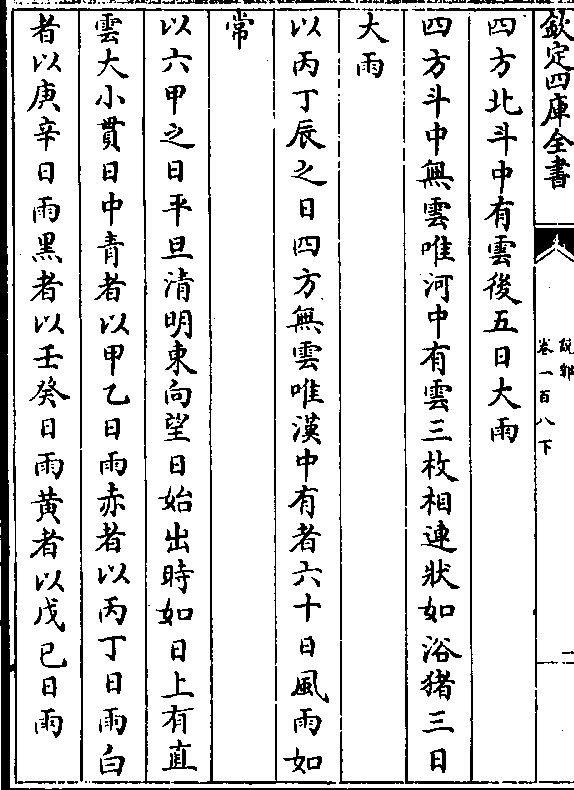 欽定四庫全書
說郛
卷一百八下
二
四方北斗中有雲後五日大雨
四方斗中無雲唯河中有雲三枚相連狀如浴猪三日
大雨
以丙丁辰之日四方無雲唯漢中有者六十日風雨如
常
以六甲之日平旦清明東向望日始出時如日上有直
雲大小貫日中青者以甲乙日雨赤者以丙丁日雨白
者以庚辛日雨黑者以壬癸日雨黄者以戊巳日雨